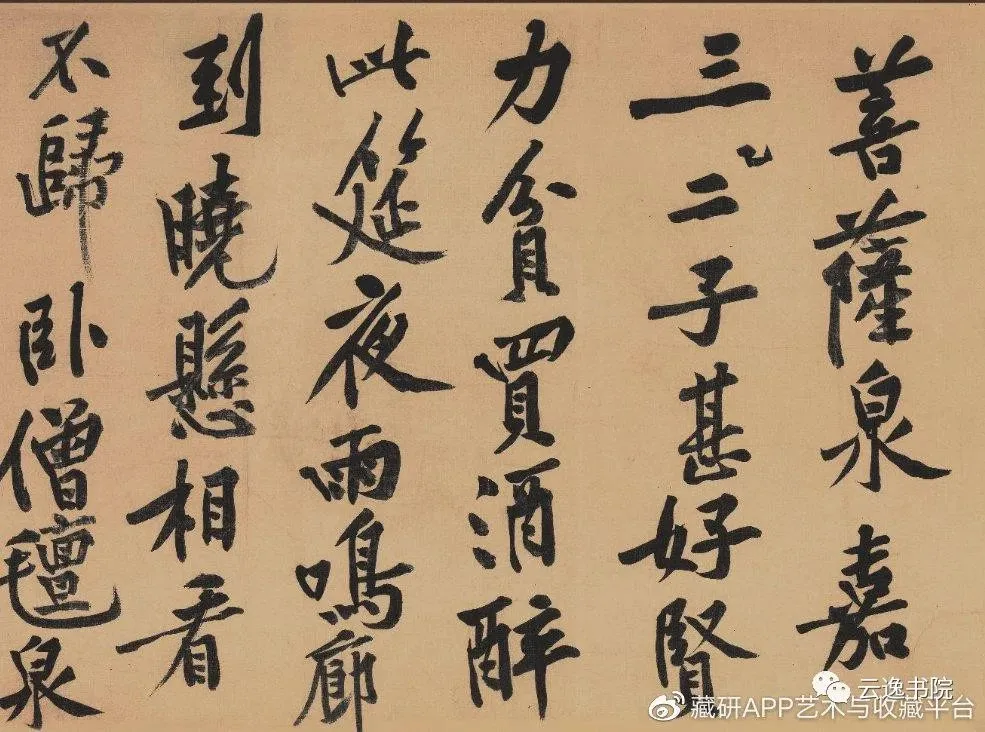 菩薩泉嘉
三二子甚好賢
力貧買酒醉
此筵夜雨鳴廊
到曉懸相看
不歸臥僧氊泉
云逸书院
藏研APP艺术与收藏平台